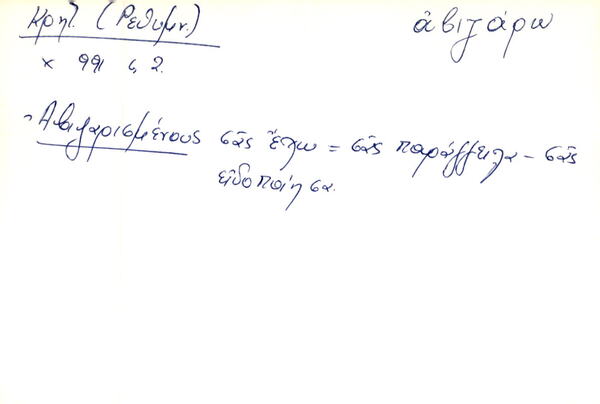 Κρητ. (Ρεθυμν.)
ἀβιζάρω
χ 991 ς 2.
Ἀβιζαρισμένους σᾶς ἔχω = σᾶς παράγγειλα - σᾶς
εἰδοποίησα.